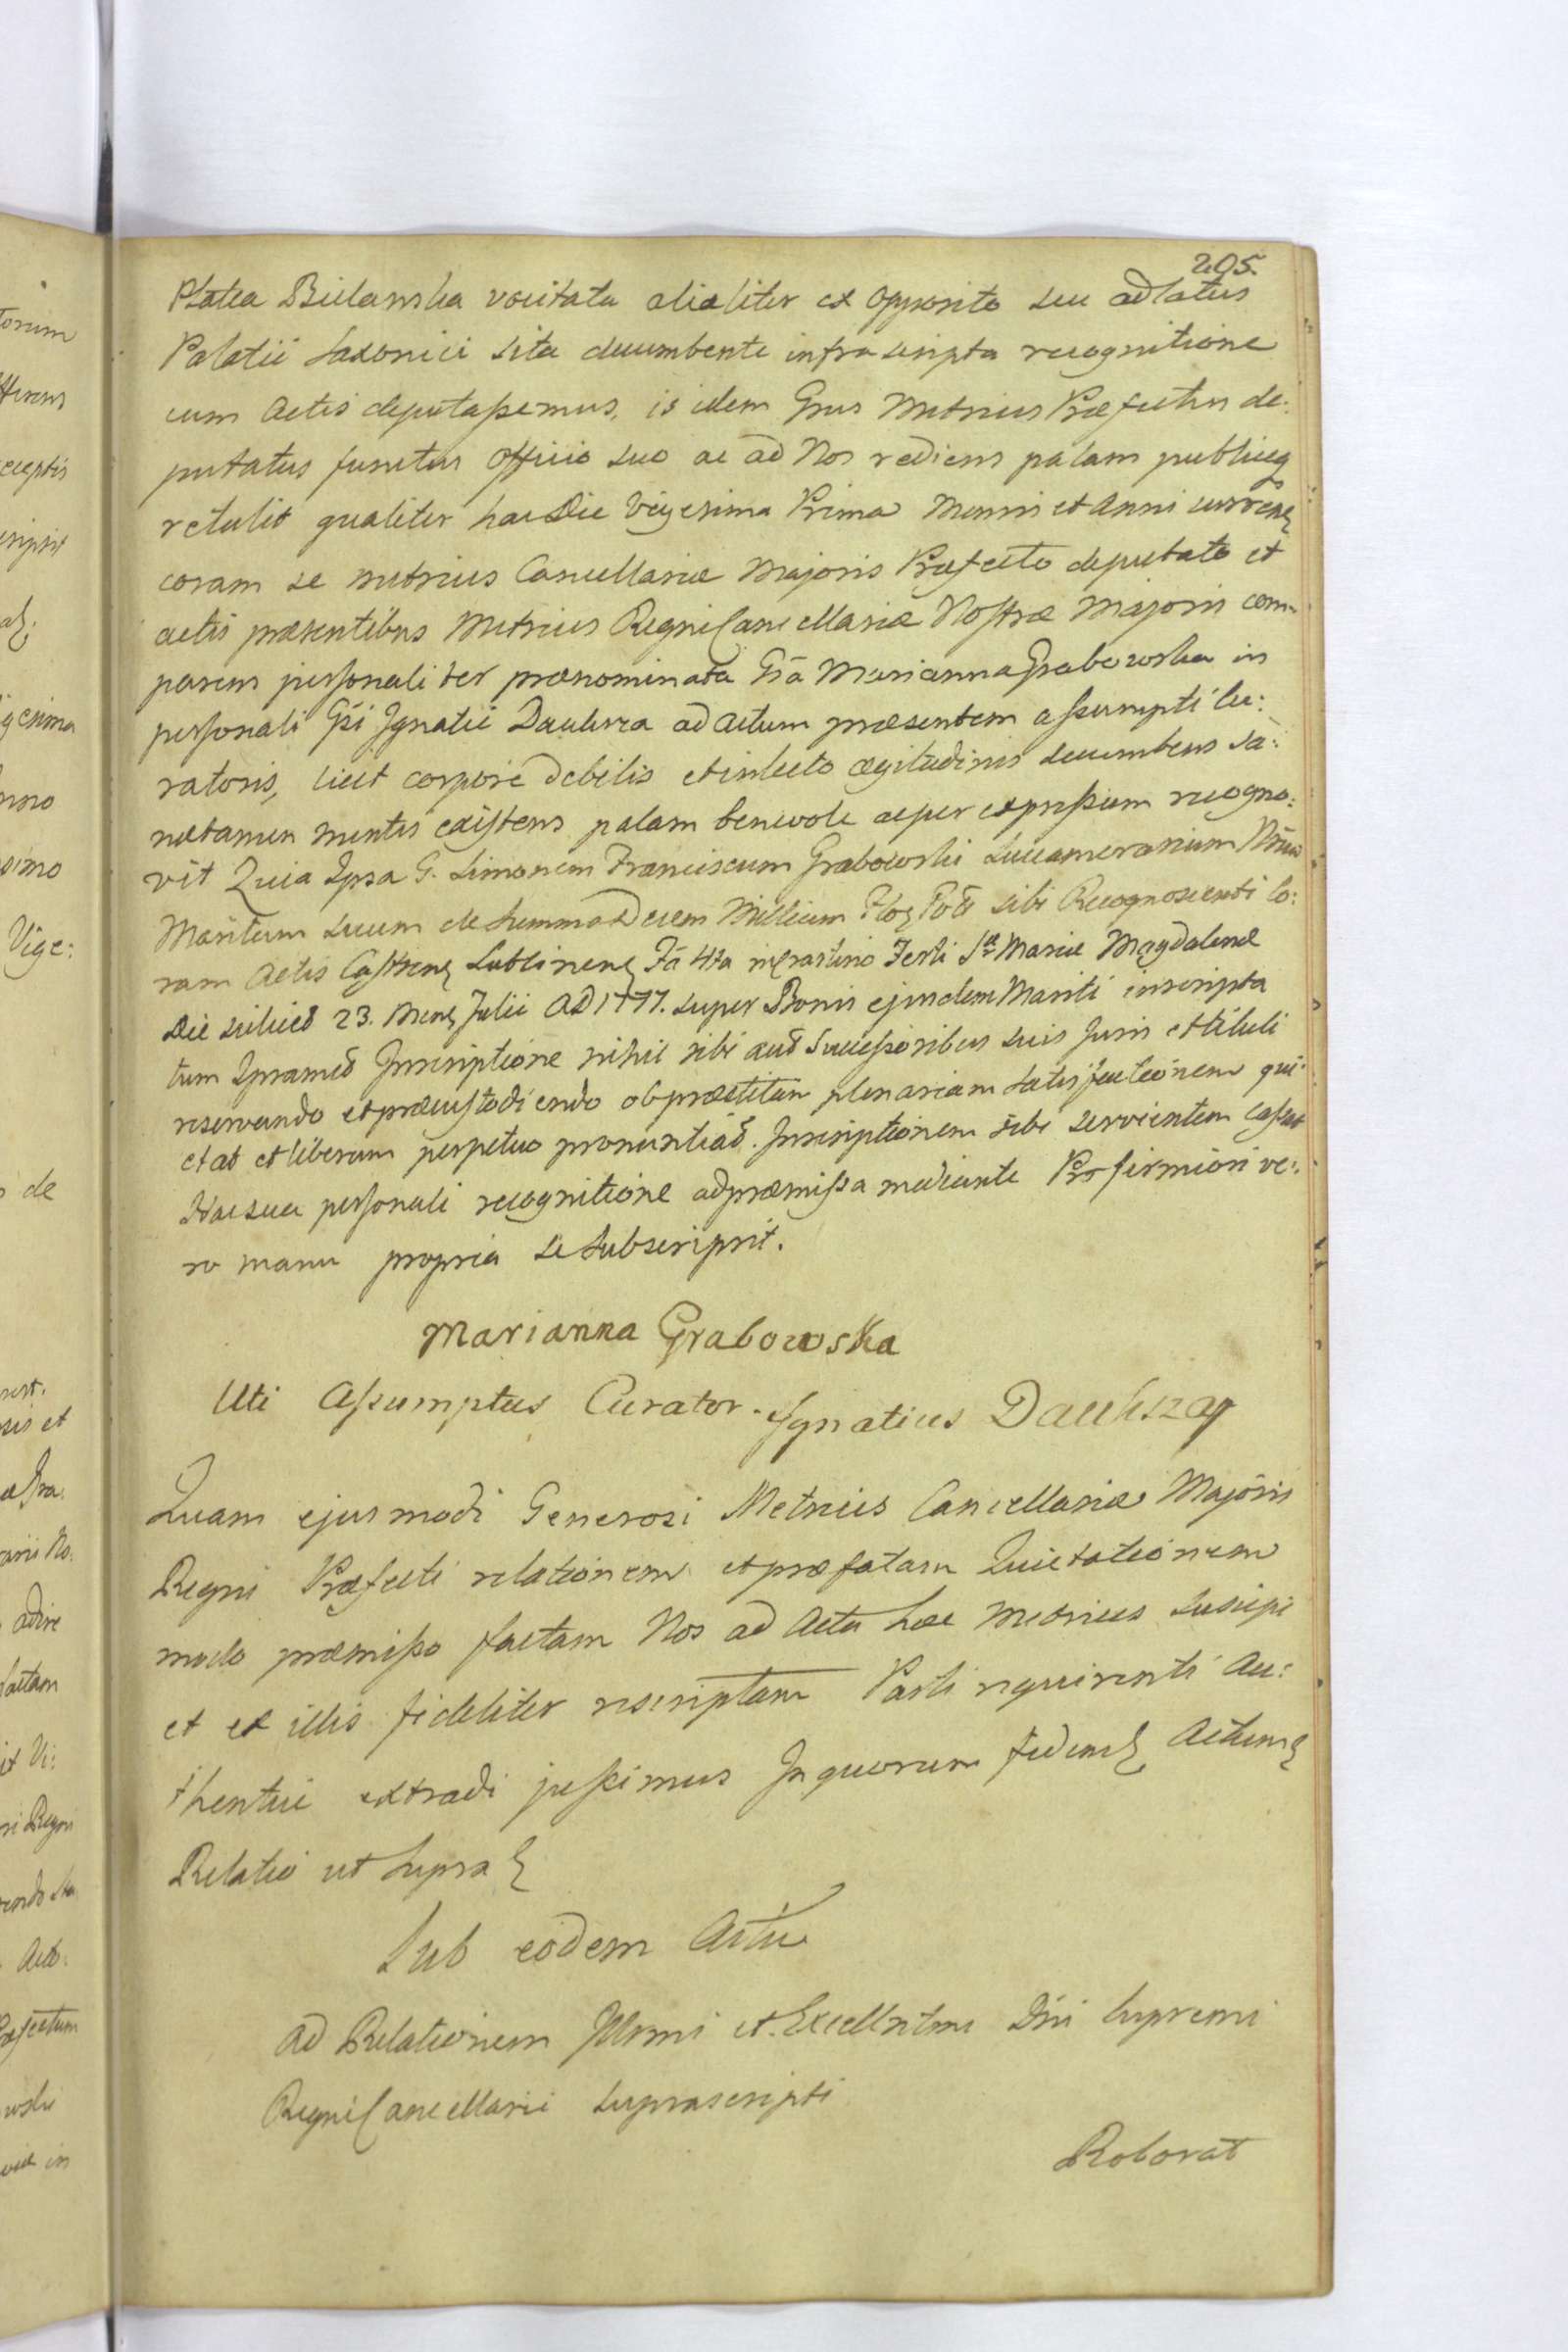 205.
Platea Bielanska vocitata alialiter ex opposito seu ad latus
Palatii Saxonici sita decumbente infrascripta recognitione
cum Actis deputaßemus, is idem Grus Metrices Præfectus de:
putatus functus officio suo ac ad Nos rediens palam publiceq
retulit qualiter hac Die Vigesima Prima Mensis et Anni curren
coram se Metrices Cancellariæ Majoris Præfecto deputato et
actis præsentibus Metrices Regni Cancellariæ Nostræ Majoris com-
parens personaliter prænominata Gsa Marianna Grabowska in
personali Gsi Ignatii Dauksza ad actum præsentem aßumpti Cu:
ratoris, licet corpore debilis et in lecto ægitudinis decumbens sa:
na tamen mentis existens palam benevole ac per expreßum recogno:
vit Quia Ipsa G. Simonem Franciscum Grabowski Succamerarium Nrum
Maritum suum de Summa Decem Millium Flor Pol sibi Recognoscenti co:
ram Actis Castren Lublinen Fa 4ta in Crastino Festi S. Mariæ Magdalenæ
Die scilicet 23. Mens Julii AD 1777. super Bonis ejusdem Mariti inscripta
tum Ipsamet Inscriptione nihil sibi aut Succeßoribus suis Juris et tituli
reservando et præcustodiendo ob præstitam plenariam satisfactionem qui:
etat et liberum perpetuo pronuntiat. Inscriptionem sibi servientem caßat
Hac sua personali recognitione ad præmißa mediante Pro firmiori ve:
ro manu propria se subscripsit.
Marianna Grabowska
Uti Aßumptus Curator. Ignatius Dauksza
Quam ejusmodi Generosi Metrices Cancellariæ Majoris
Regni Præfecti relationem et præfatam Quietationem
modo præmißo factam Nos ad Acta hæc Metrices suscipi
et ex illis fideliter rescriptam Parti requirenti Au:
thentice extradi jußimus In quorum fidem Actum
Relatio ut supra
Sub eodem Actu
Ad Relationem Illrmi et Excellntmi Dni Supremi
Regni Cancellarii suprascripti
Roborat